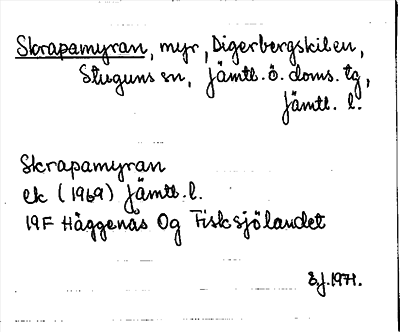 Skrapamyran, myr, Digerbergskilen,
Stuguns sn, Jämtl. ö. doms. tg,
Jämtl. l.
Skrapamyran
ek (1969) Jämtl. l.
19F Häggenås Og Fisksjölandet
EJ. 1971.